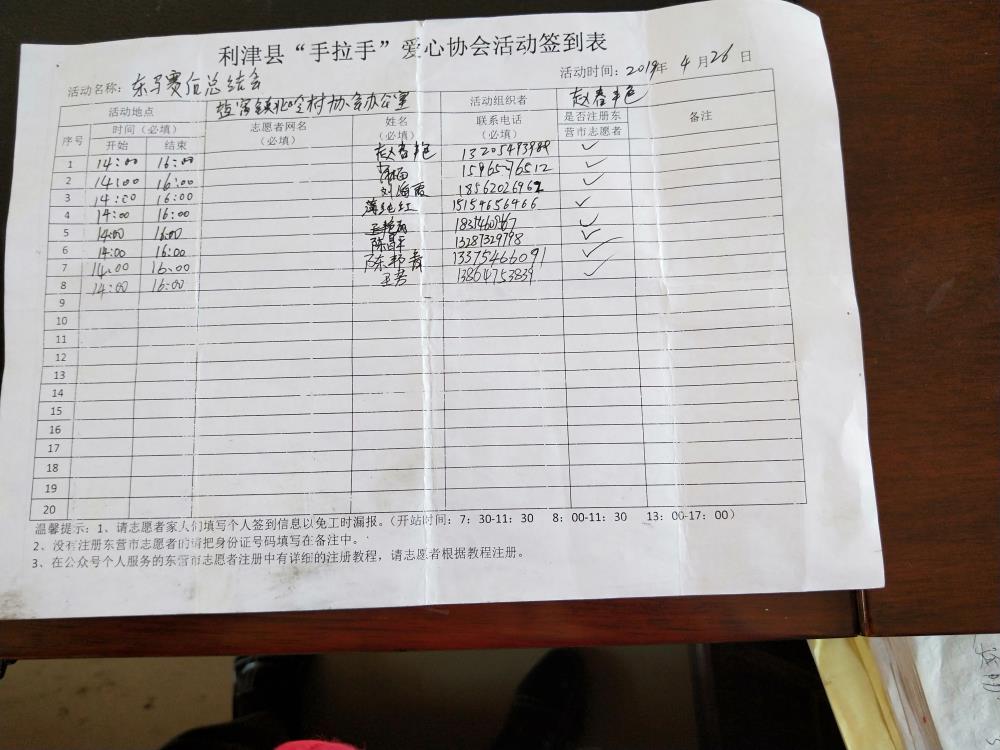 利津县“手拉手”爱心协会活动签到表
活动名称：东马赛后总结会 活动时间：2019年 4 月 26 日
活动地点 盐窝镇北岭村协会办公室 活动组织者 赵春艳
序号 时间（必填） 志愿者网名（必填） 姓名（必填） 联系电话（必填） 是否注册东营市志愿者 备注
开始 结束
1 14:00 16:00 赵春艳 ✓
2 14:00 16:00 15965276512 ✓
3 14:00 16:00 刘海霞 18562026962 ✓
4 14:00 16:00 薄纯红 15154656966 ✓
5 14:00 16:00 ✓
6 14:00 16:00 陈昌平 13287329798 ✓
7 14:00 16:00 陈邦青 13375466091 ✓
8 14:00 16:00 王芳 13864753839 ✓
9
10
11
12
13
14
15
16
17
18
19
20
温馨提示：1、请志愿者家人们填写个人签到信息以免工时漏报。（开站时间：7：30-11：30 8：00-11：30 13：00-17：00）
2、没有注册东营市志愿者的请把身份证号码填写在备注中。
3、在公众号个人服务的东营市志愿者注册中有详细的注册教程，请志愿者根据教程注册。